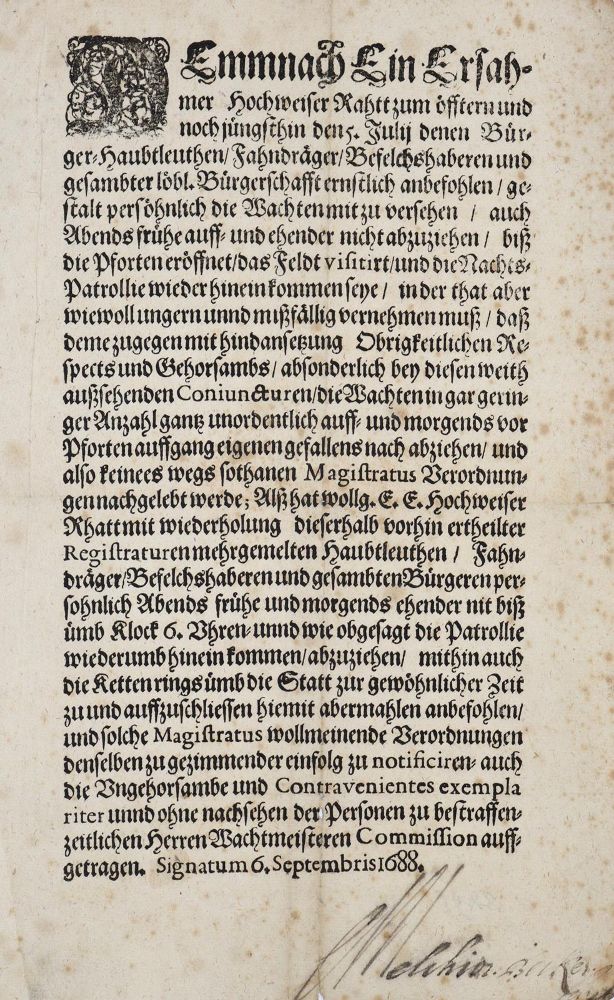 DEmmnach Ein Ersah⸗
mer Hochweiser Rahtt zum öfftern und
noch jüngsthin den 5. Julij denen Bür⸗
ger⸗Haubtleuthen/Fahndräger/Befelchshaberen und
gesambter löbl. Bürgerschafft ernstlich anbefohlen/ ge⸗
stalt persöhnlich die Wachten mit zu versehen / auch
Abends frühe auff⸗ und ehender nicht abzuziehen/ biß
die Pforten eröffnet/das Feldt visitirt/und die Nachts⸗
Patrollie wieder hinein kommen seye/ in der that aber
wiewoll ungern unnd mißfällig vernehmen muß/ daß
deme zugegen mit hindansetzung Obrigkeitlichen Re⸗
spects und Gehorsambs/ absonderlich bey diesen weith
außsehenden Coniuncturen/die Wachten in gar gerin⸗
ger Anzahl gantz unordentlich auff⸗ und morgends vor
Pforten auffgang eigenen gefallens nach abziehen/ und
also keinees wegs sothanen Magistratus Verordnun⸗
gen nachgelebt werde; Alß hat wollg. E. E. Hochweiser
Rhatt mit wiederholung dieserhalb vorhin ertheilter
Registraturen mehrgemelten Haubtleuthen / Fahn⸗
dräger/Befelchshaberen und gesambten Bürgeren per⸗
sohnlich Abends frühe und morgends ehender nit biß
ümb Klock 6. Vhren⸗ unnd wie obgesagt die Patrollie
wiederumb hinein kommen/abzuziehen/ mithin auch
die Ketten rings ümb die Statt zur gewöhnlicher Zeit
zu und auffzuschliessen hiemit abermahlen anbefohlen/
und solche Magistratus wollmeinende Verordnungen
denselben zu gezimmender einfolg zu notificiren⸗ auch
die Vngehorsambe und Contravenientes exempla
riter unnd ohne nachsehen der Personen zu bestraffen⸗
zeitlichen Herren Wachtmeisteren Commission auff⸗
getragen. Signatum 6. Septembris 1688.
Melchior